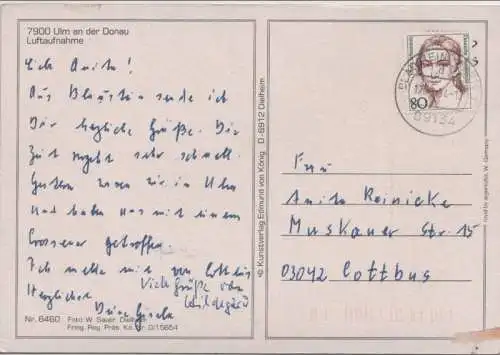 7900 Ulm an der Donau
Luftaufnahme
Lieb Anita!
Aus Blaustein sende ich
Dir herzliche Grüße. Die
Zeit vergeht sehr schnell.
Gestern waren wir in Ulm
Und haben uns mit einem
Crossener getroffen.
Ich melde mich von Cottbus
Viele Grüße von
Hildegard
Herzlichst
Deine Gisela
Nr. 6460 Foto: W. Sauer, Dielheim
Freig. Reg. Präs. Ka. Nr. 0/15664
© Kunstverlag Edmund von König D-6912 Dielheim
80
89134
Frau
Anita Reinicke
Muskauer Str. 15
03042 Cottbus